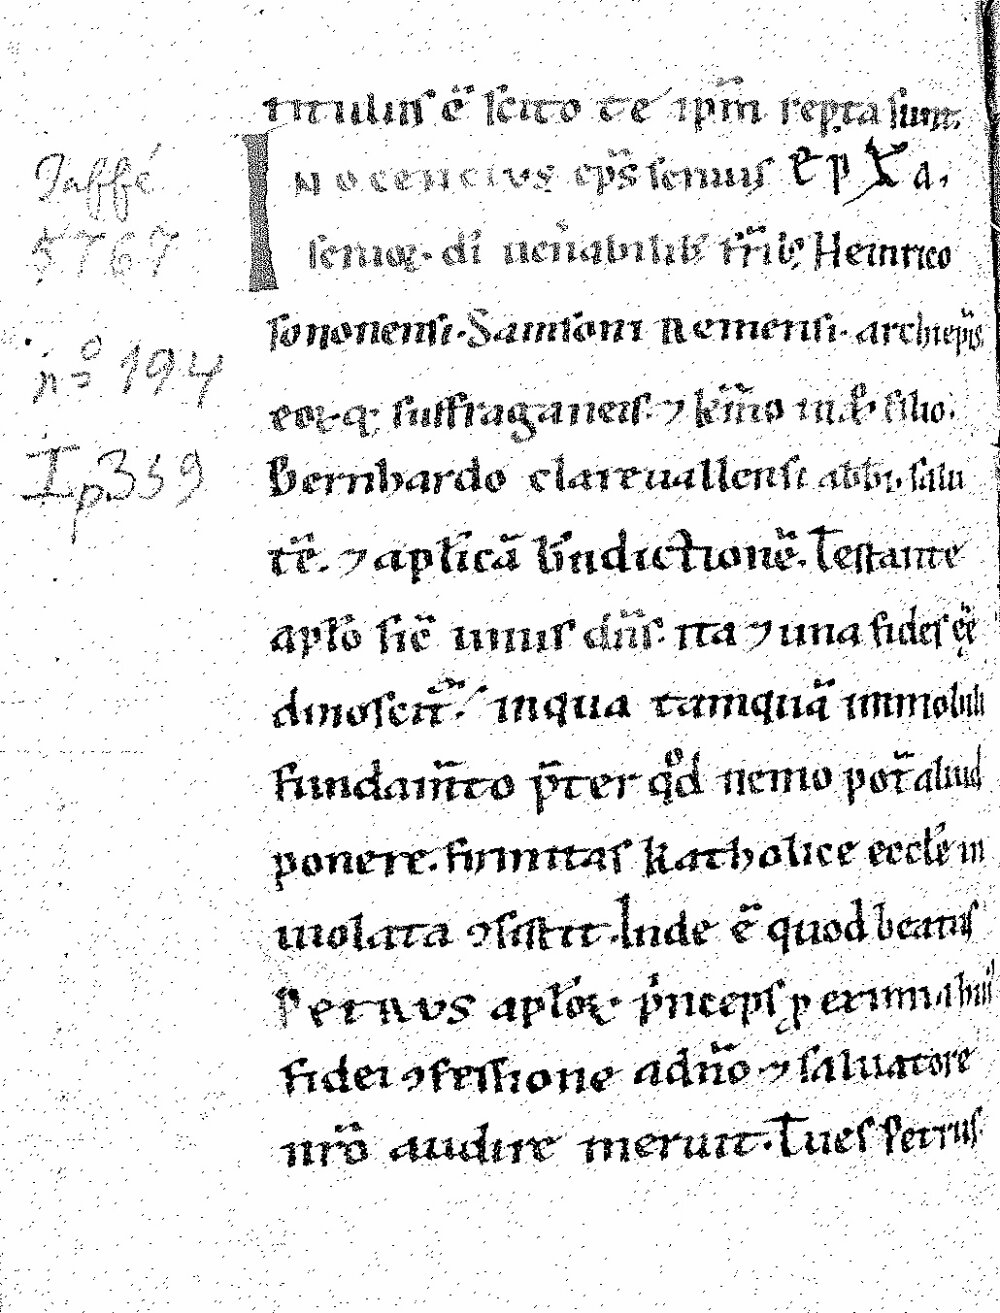 titulus ē. scito te ipm̄ rep̱ta sunt.
Jaffé
INNocencius ep̄s seruus ep Xa.
5767
seruoꝝ. dī uen̄abilib; fr̄ib; Heinrico
sononensi. Samsoni Remensi. archiep̄is
nº 194
eoꝝq; suffraganeis. ⁊ kr̄mo in xp̄o filio.
I p 359
Bernhardo clareuallensi abb̄i. salu
tē. ⁊ apl̄icā bn̄dictionē. Testante
apl̄o sic̄ unus dn̄s. ita ⁊ una fides eē
dinoscit᷑. in qua tamquā immobili
fundam̄to p̄ter qͦd nemo pot̄ aliud
ponere. firmitas katholice eccl̄e in
uiolata ꝯsistit. Inde ē quod beatus
PETRVS apl̄oꝝ p̓nceps ꝓ eximia hui᷒
fidei ꝯfessione a dn̄o ⁊ saluatore
nr̄o audire meruit. Tu es Petrus.